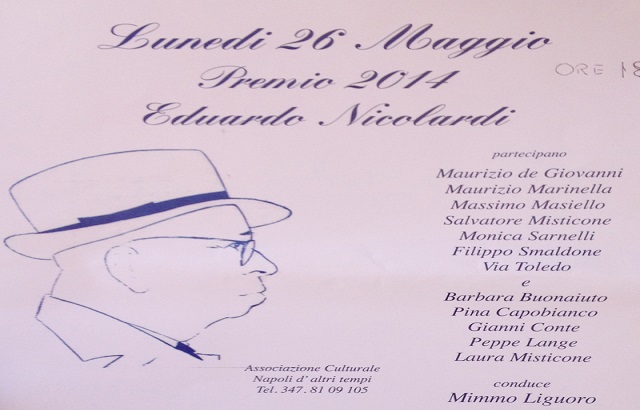 Lunedi 26 Maggio
ORE 18
Premio 2014
Eduardo Nicolardi
partecipano
Maurizio de Giovanni
Maurizio Marinella
Massimo Masiello
Salvatore Misticone
Monica Sarnelli
Filippo Smaldone
Via Toledo
e
Barbara Buonaiuto
Pina Capobianco
Gianni Conte
Peppe Lange
Laura Misticone
conduce
Mimmo Liguoro
Associazione Culturale
Napoli d' altri tempi
Tel. 347. 81 09 105